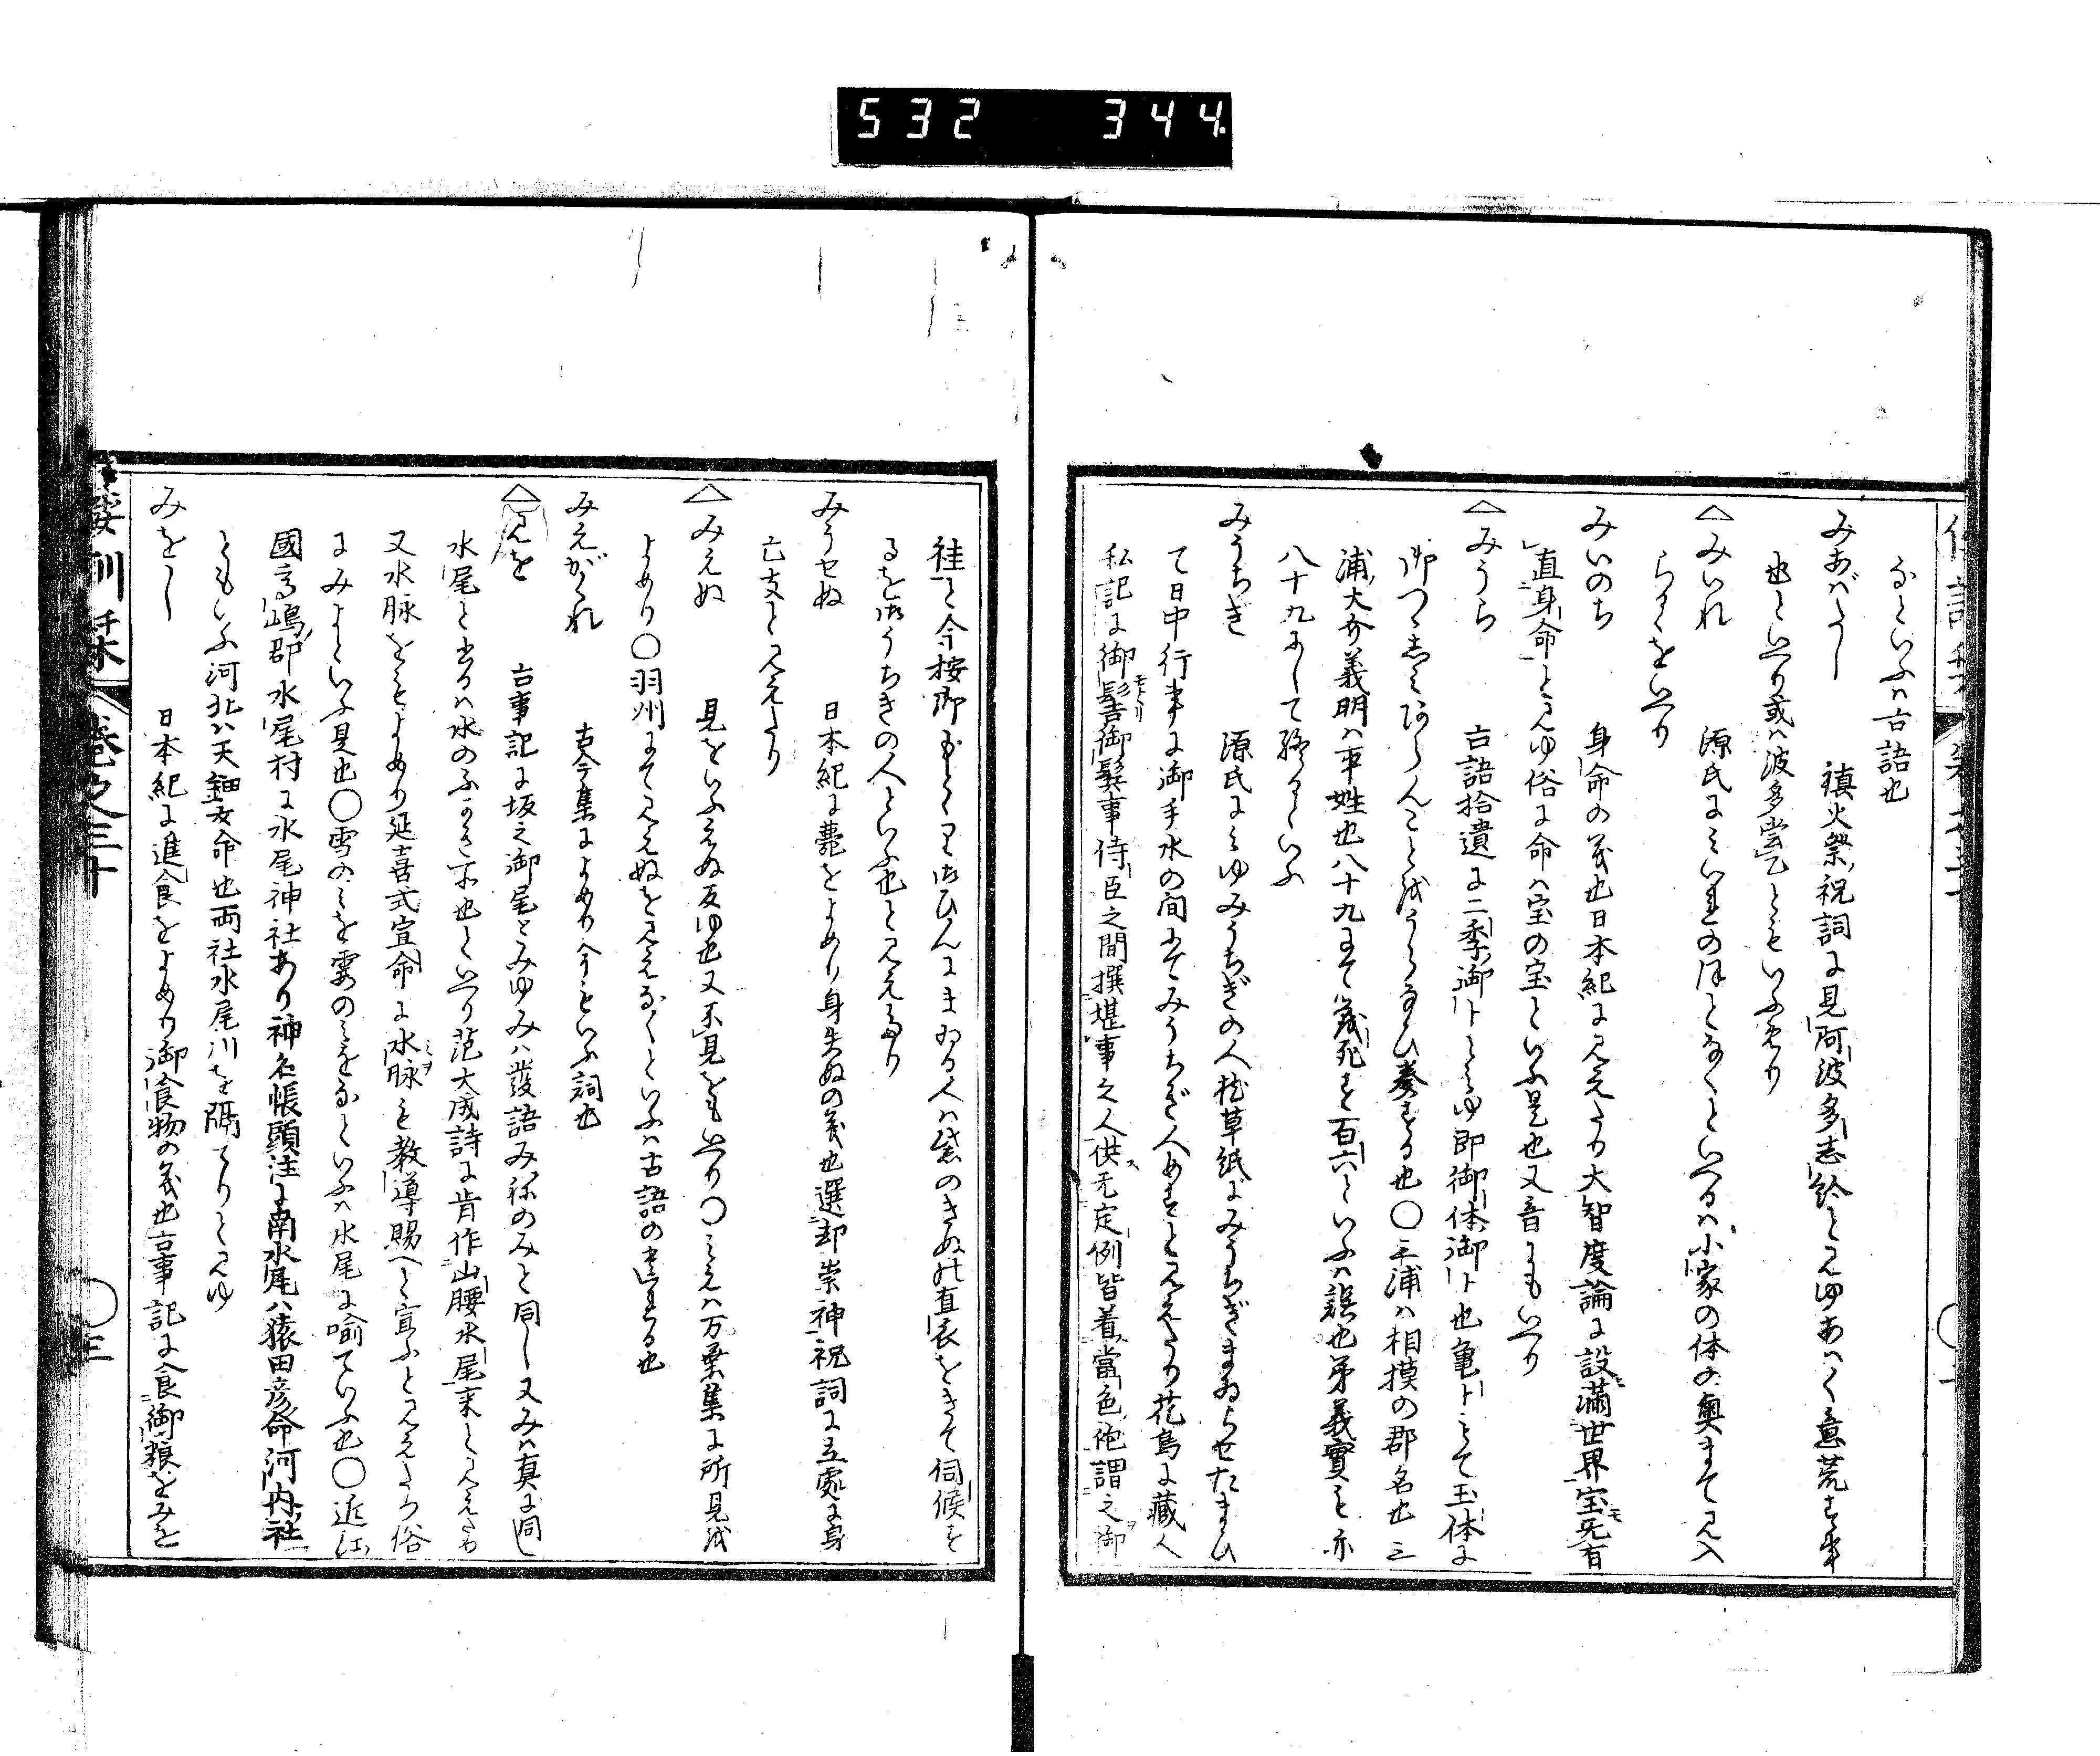 532 344.
なといふハ古語也
みあばたし 禎火祭祝詞に見阿波多志給とみゆあハく意荒す事
也といへり或ハ波多嘗ともいふへり
△みいれ 源氏にみいれのほとなくといへるハ小家の体の奥まて見入
らるゝをいへり
みいのち 身命の義也日本紀に見えたり大智度論に設満世界宝无有
直身命とみゆ俗に命ハ宝の宝といふ是也又音にもいへり
△みうら 古語拾遺に二季御卜とみゆ即御体御卜也亀卜もて玉体に
御つゝしみあらんことをうらなひ奏する也〇三浦ハ相摸の郡名也三
浦大介義明ハ平姓也八十九にて義死す百六といふハ誤也弟義實も亦
八十九にして終るといふ
みうちぎ 源氏にみゆみうちぎの人枕草紙にみうちぎまゐらせたまひ
て日中行事に御手水の間にてみうちぎ人めすとみえたり花鳥に藏人
私記に御髻御鬢事侍臣之間撰堪事之人供无定例皆着當色袍謂之御
袿と今按御もとゝり御ひんにまゐる人ハ袋のきぬ直衣をきて伺候す
るを御うちきの人といふ也とみえたり
みうせぬ 日本紀に薨をよめり身失ぬの義也遷却崇神祝詞に立處に身
亡支とみえたり
△みえぬ 見をいふえぬ反ゆ也又不見をもいへり〇みえハ万葉集に所見を
よめり〇羽州にてみえぬをみえなくといふハ古語の遺れる也
みえがくれ 古今集によめり今もいふ詞也
△みを 古事記に坂之御尾とみゆみハ發語み祢のみと同し又みハ真に同し
水尾と書るハ水のふかき所也といへり范大成詩に肯作山腰水尾末とみえたり
又水脉をもよめり延喜式宣命に水脉も教導賜へと宣ふとみえたり俗
にみよといふ是也〇雪のみを雲のみをなといふハ水尾に喩ていふ也〇近江
國高嶋郡水尾村に水尾神社あり神名帳頭注に南水尾ハ猿田彦命河内社
ともいふ河北ハ天鈿女命也両社水尾川を隔てりとみゆ
みをし 日本紀に進食をよめり御食物の義也古事記に食御粮をみを
倭訓栞 巻之三十 〇三